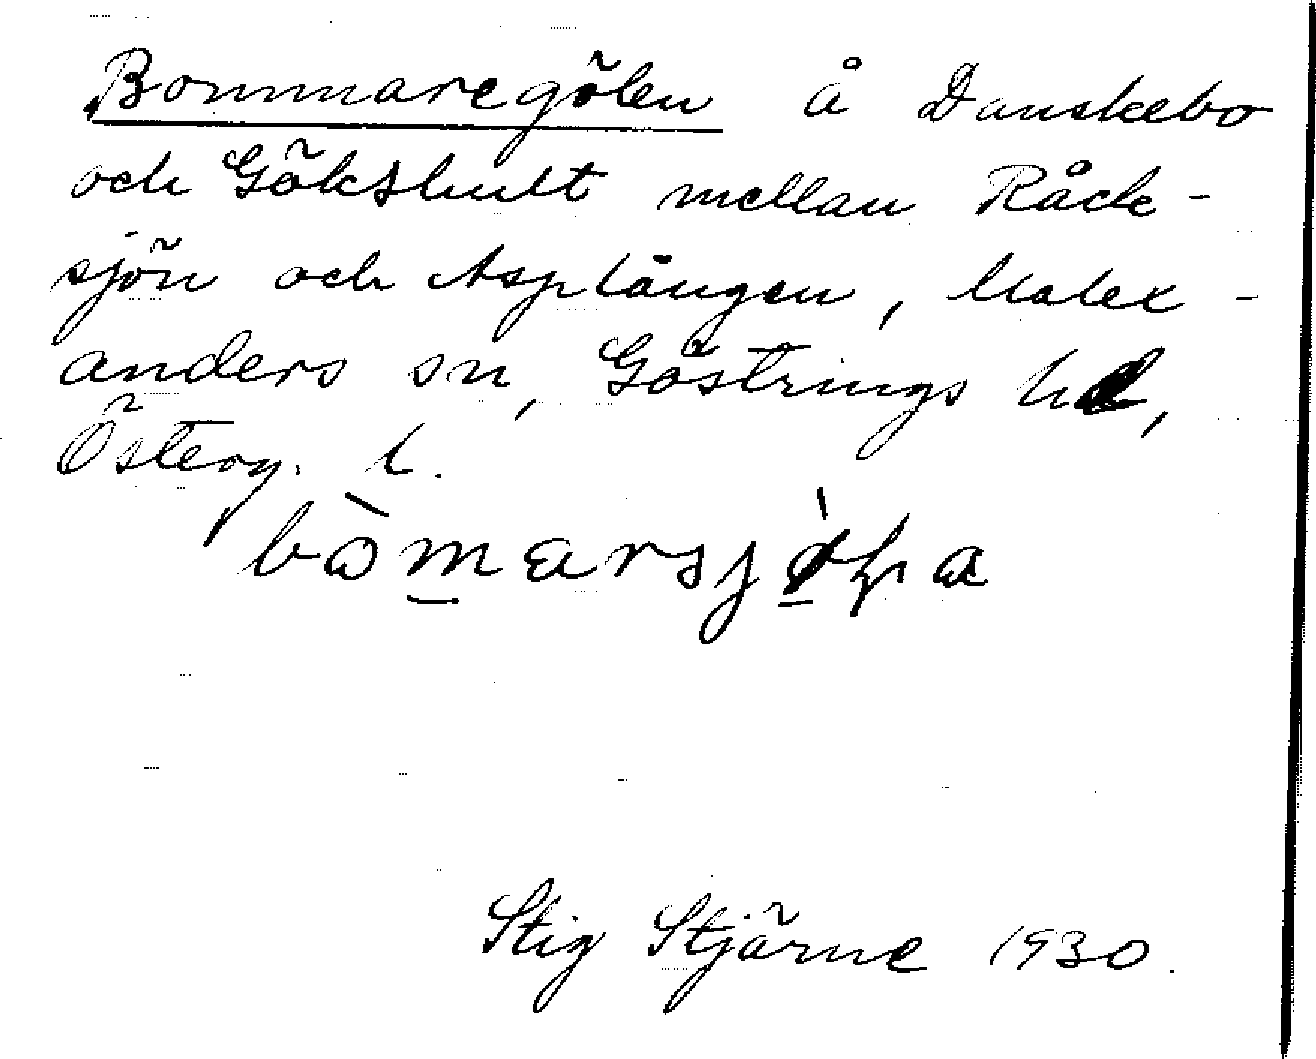 Bommaregölen å Danskebo
och Gökshult mellan Råck-
sjön och Asplången, Malex-
anders sn, Göstrings hd,
Österg. l.
Stig Stjärne 1930.